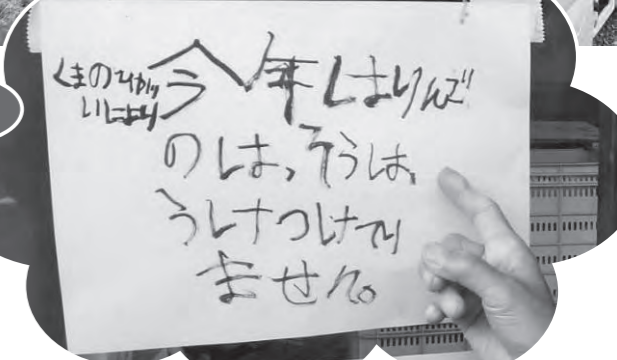 くまのひが
いにより
今年はりんご
のは、そうは、
うけつけてい
ません。